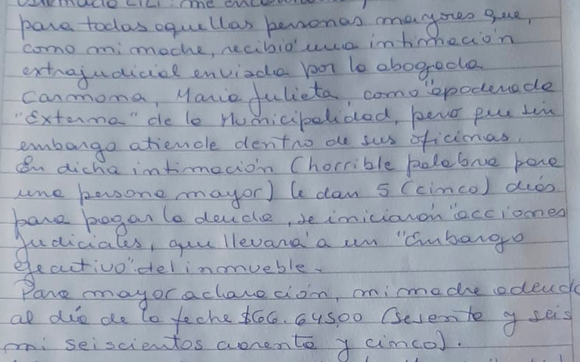 para todas aquellas personas mayores que,
como mi madre, recibió una intimación
extrajudicial enviada por la abogada
Carmona, María Julieta, como "apoderada
"Externa" de la Municipalidad, pero que sin
embargo atiende dentro de sus oficinas.
En dicha intimación (horrible palabra para
una persona mayor) le dan 5 (cinco) días
para pagar la deuda, se iniciarán "acciones
judiciales, que llevará a un "Embargo
ejecutivo" del inmueble.
Para mayor aclaración, mi madre adeuda
al día de la fecha $66.645,00 (sesenta y seis
mi seiscientos cuarenta y cinco).